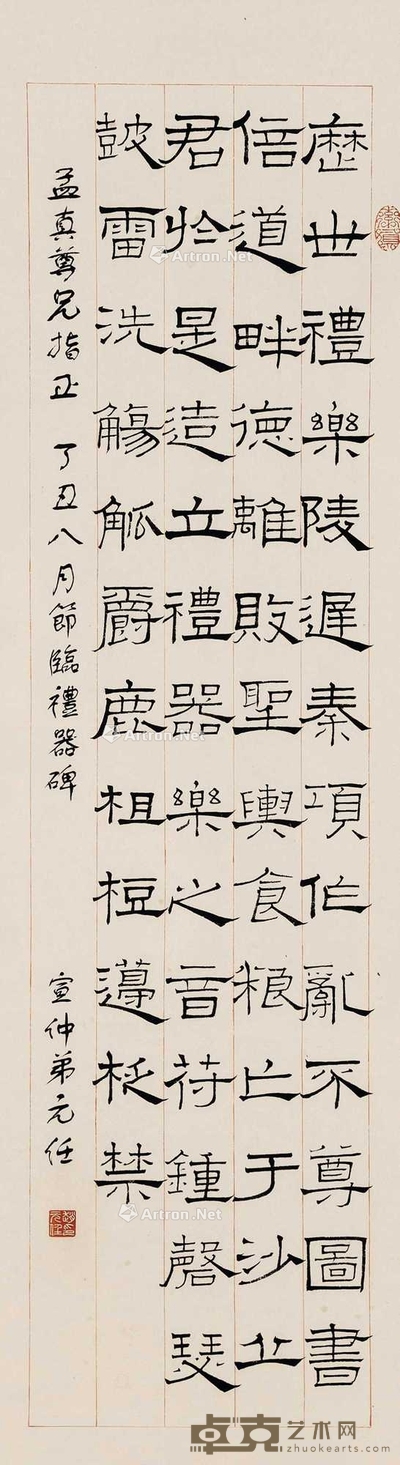 歷世禮樂陵遲秦項作亂不尊圖書
倍道畔德離敗聖輿食粮亡于沙丘
君於是造立禮器樂之音苻鍾磬瑟
皷雷洗觴觚爵鹿柤梪籩柉禁
孟真尊兄指正 丁丑八月節臨禮器碑 宣仲弟元任
Artron.Net
Artron.Net
Artron.Net
Artron.Net
卓克艺术网
zhuokearts.com